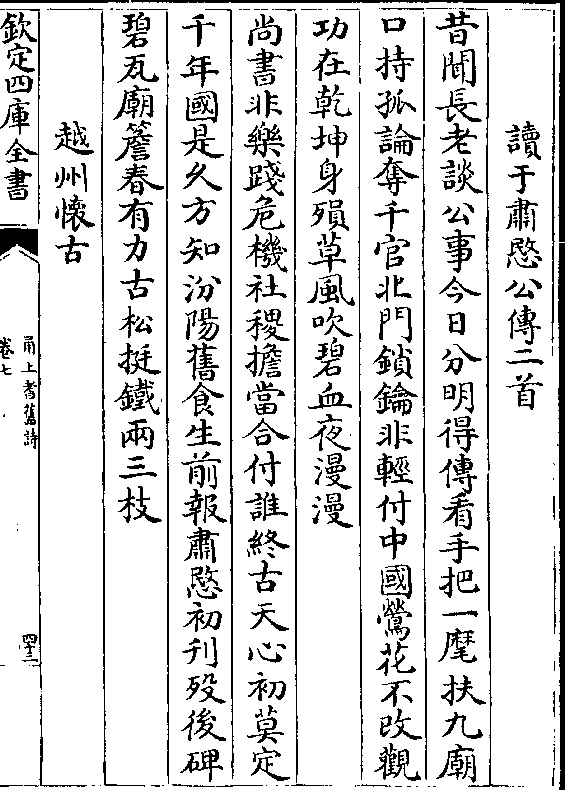 讀于肅愍公傳二首
昔聞長老談公事今日分明得傳看手把一麾扶九廟
口持孤論奪千官北門鎖鑰非輕付中國鶯花不改觀
功在乾坤身殞草風吹碧血夜漫漫
尚書非樂踐危機社稷擔當合付誰終古天心初莫定
千年國是久方知汾陽舊食生前報肅愍初刋歿後碑
碧瓦廟簷春有力古松挺鐵兩三枝
越州懷古
欽定四庫全書
甬上耆舊詩
卷七
四十三